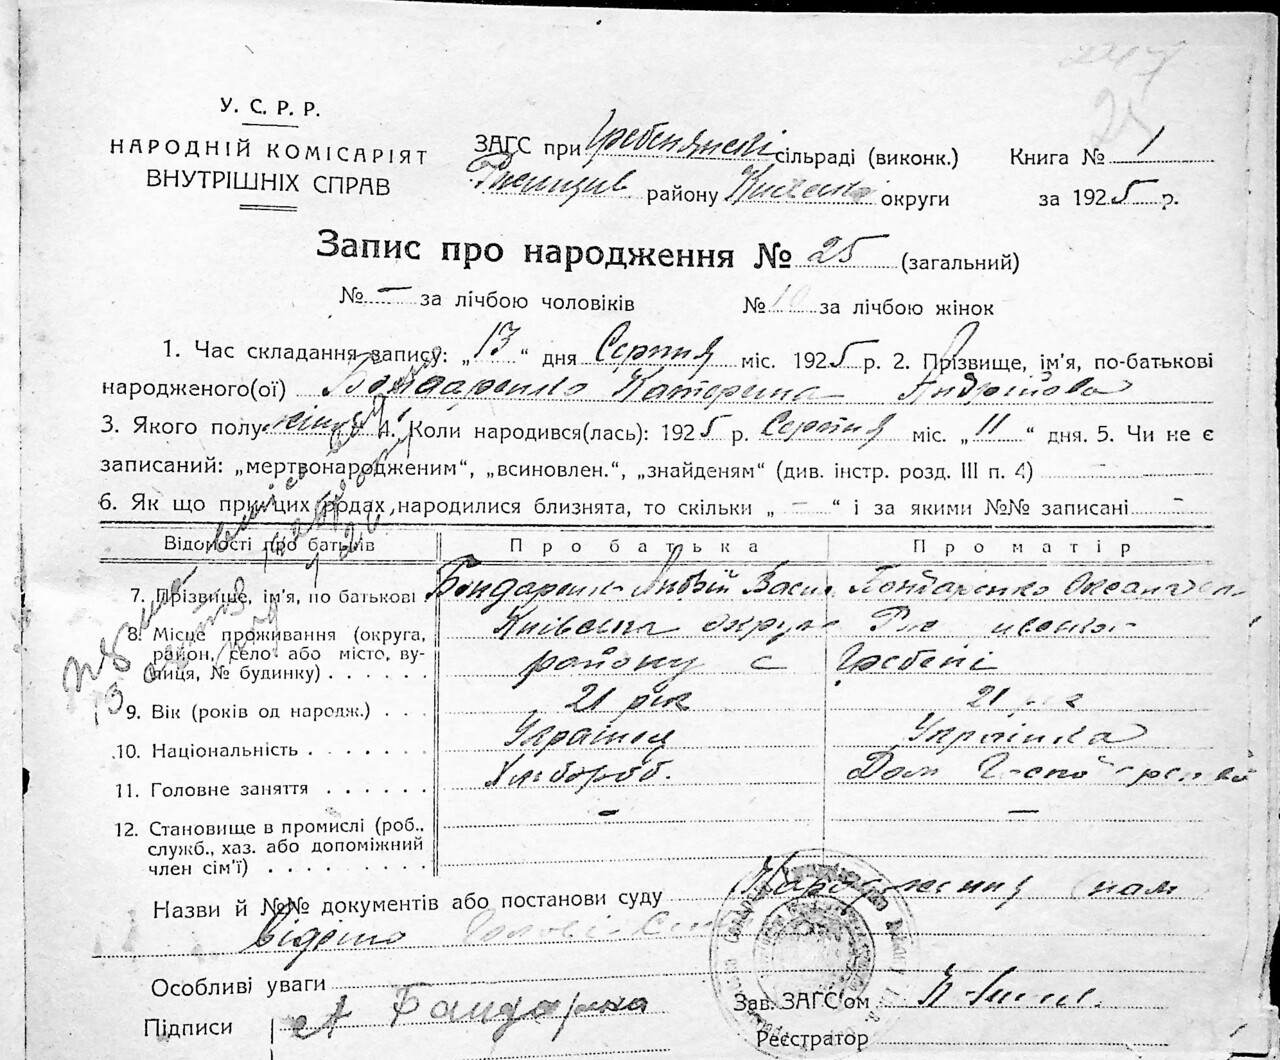 247
25
У. С. Р. Р.
НАРОДНІЙ КОМІСАРІЯТ
ВНУТРІШНІХ СПРАВ
ЗАГС при Гребенянскі сільраді (виконк.) Книга № 1
району округи за 1925 р.
Запис про народження № 25 (загальний)
№ – за лічбою чоловіків № 10 за лічбою жінок
1. Час складання запису: „13“ дня Серпня міс. 1925 р. 2. Прізвище, ім'я, по-батькові
народженого(ої) Бондаренко Катерина Андріїова
3. Якого полу 4. Коли народився(лась): 1925 р. Серпня міс. „11“ дня. 5. Чи не є
записаний: „мертвонародженим“, „всиновлен.“, „знайденям“ (див. інстр. розд. III п. 4) –
6. Як що при цих родах народилися близнята, то скільки „ – “ і за якими №№ записані –
Відомості про батьків Про батька Про матір
7. Прізвище, ім'я, по батькові Бондаренко Васил. Бондаренко Оксана
8. Місце проживання (округа, Київська округа
район, село або місто, ву- району с Гребені
лиця, № будинку)
9. Вік (років од народж.) 21 рік 21 рік
10. Національність Українец Українка
11. Головне заняття Хлібороб. Дом
12. Становище в промислі (роб., – –
служб., хаз. або допоміжний
член сім'ї)
Назви й №№ документів або постанови суду нам
відомо
Особливі уваги
Зав. ЗАГС'ом
Підписи А Бандарка
Реєстратор